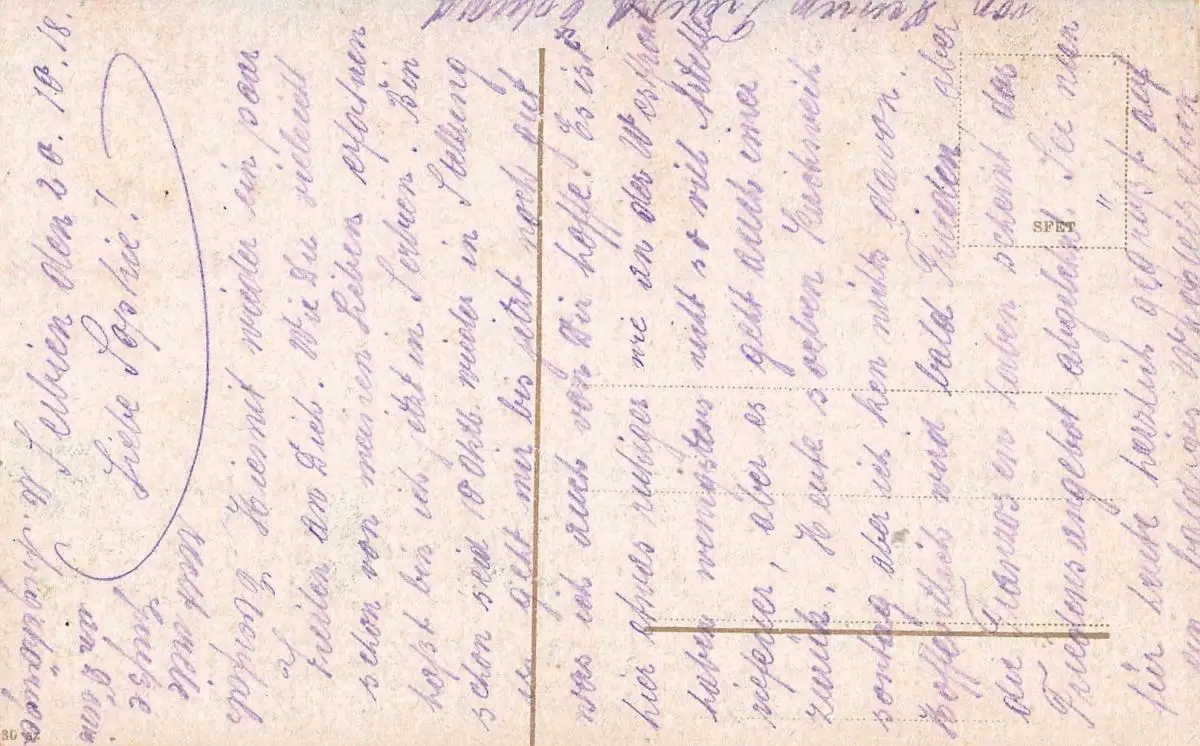 Serbien den 20. 10. 18.
Liebe Sophie!
Hiermit wieder ein paar
Zeilen an Dich. Wie Du vieleit
schon von meinen Lieben erfahren
hast bin ich jetzt in Serbien. Bin
schon seid 8 Okto wieder in Stellung
es geht mir bis jetzt noch gut
was ich auch von Dir hoffe. Es ist
hier etwas ruhiger wie an der Westfront
haben wenigstens nicht so viel Artellrie
aber es geht auch imer
zurük. Heute soeben
sontag aber ich ken nichts davon.
Hoffentlich wird bald Frieden, aber
die Franzosen haben scheint das
Friedensangebot abgelehnt. Sei nun
für heute herzlich gegrüßt auf
ein baldiges Wiedersehen
von Deinem Freund
viele
Grüße
an
SFET
30